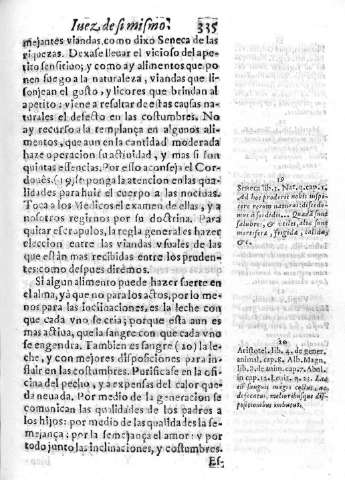 Iuez de si mismo. 335
mejantes viandas, como dixo Seneca de las
riquezas. Dexase lleuar el vicioso del ape-
tito sensitiuo; y como ay alimentos que po-
nen fuego a la naturaleza, viandas que li-
sonjean el gusto, y licores que brindan al
apetito: viene a resultar de estas causas na-
turales el defecto en las costumbres. No
ay recurso a la templança en algunos ali-
mentos, que aun en la cantidad moderada
haze operacion su actiuidad, y mas si son
quintas essencias. Por esso aconseja el Cor-
doués (19) se ponga la atencion en las qua-
lidades para huir el cuerpo a las nociuas.
Toca a los Medicos el examen de ellas, y a
nosotros regirnos por su doctrina. Para
quitar escrupulos, la regla general es hazer
eleccion entre las viandas vsuales de las
que están mas recibidas entre los pruden-
tes: como despues dirémos.
Si algun alimento puede hazer fuerte en
el alma, ya que no para los actos, por lo me-
nos para las inclinaciones, es la leche con
que cada vno se cria; porque esta aun es
mas actiua, que la sangre con que cada vno
se engendra. Tambien es sangre (20) la le-
che, y con mejores disposiciones para in-
fluir en las costumbres. Purificase en la ofi-
cina del pecho, y a expensas del calor que-
da neuada. Por medio de la generacion se
comunican las qualidades de los padres a
los hijos: por medio de las qualidades la se-
mejança; por la semejança el amor: y por
todo junto las inclinaciones, y costumbres.
Es-
19
Seneca lib. 3. Nat. q. cap. 1.
salubre, & vtiles, aliæ sunt
mortifera,
20
Aristotel. lib. 4. de gener.
animal. cap. 8. Alb. Magn.
lib. 2. de anim. cap. 7. Abul.